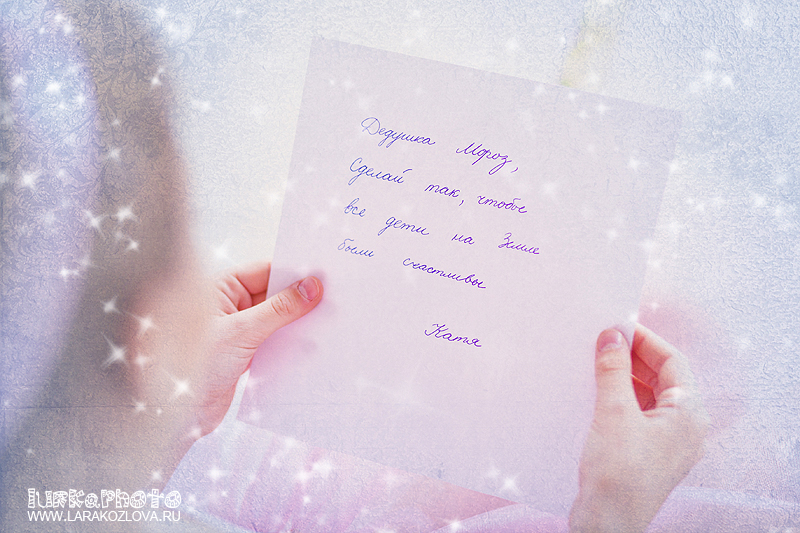 Дедушка Мороз,
Сделай так, чтобы
все дети на Земле
были счастливы
Катя
LURKAPHOTO
WWW.LARAKOZLOVA.RU